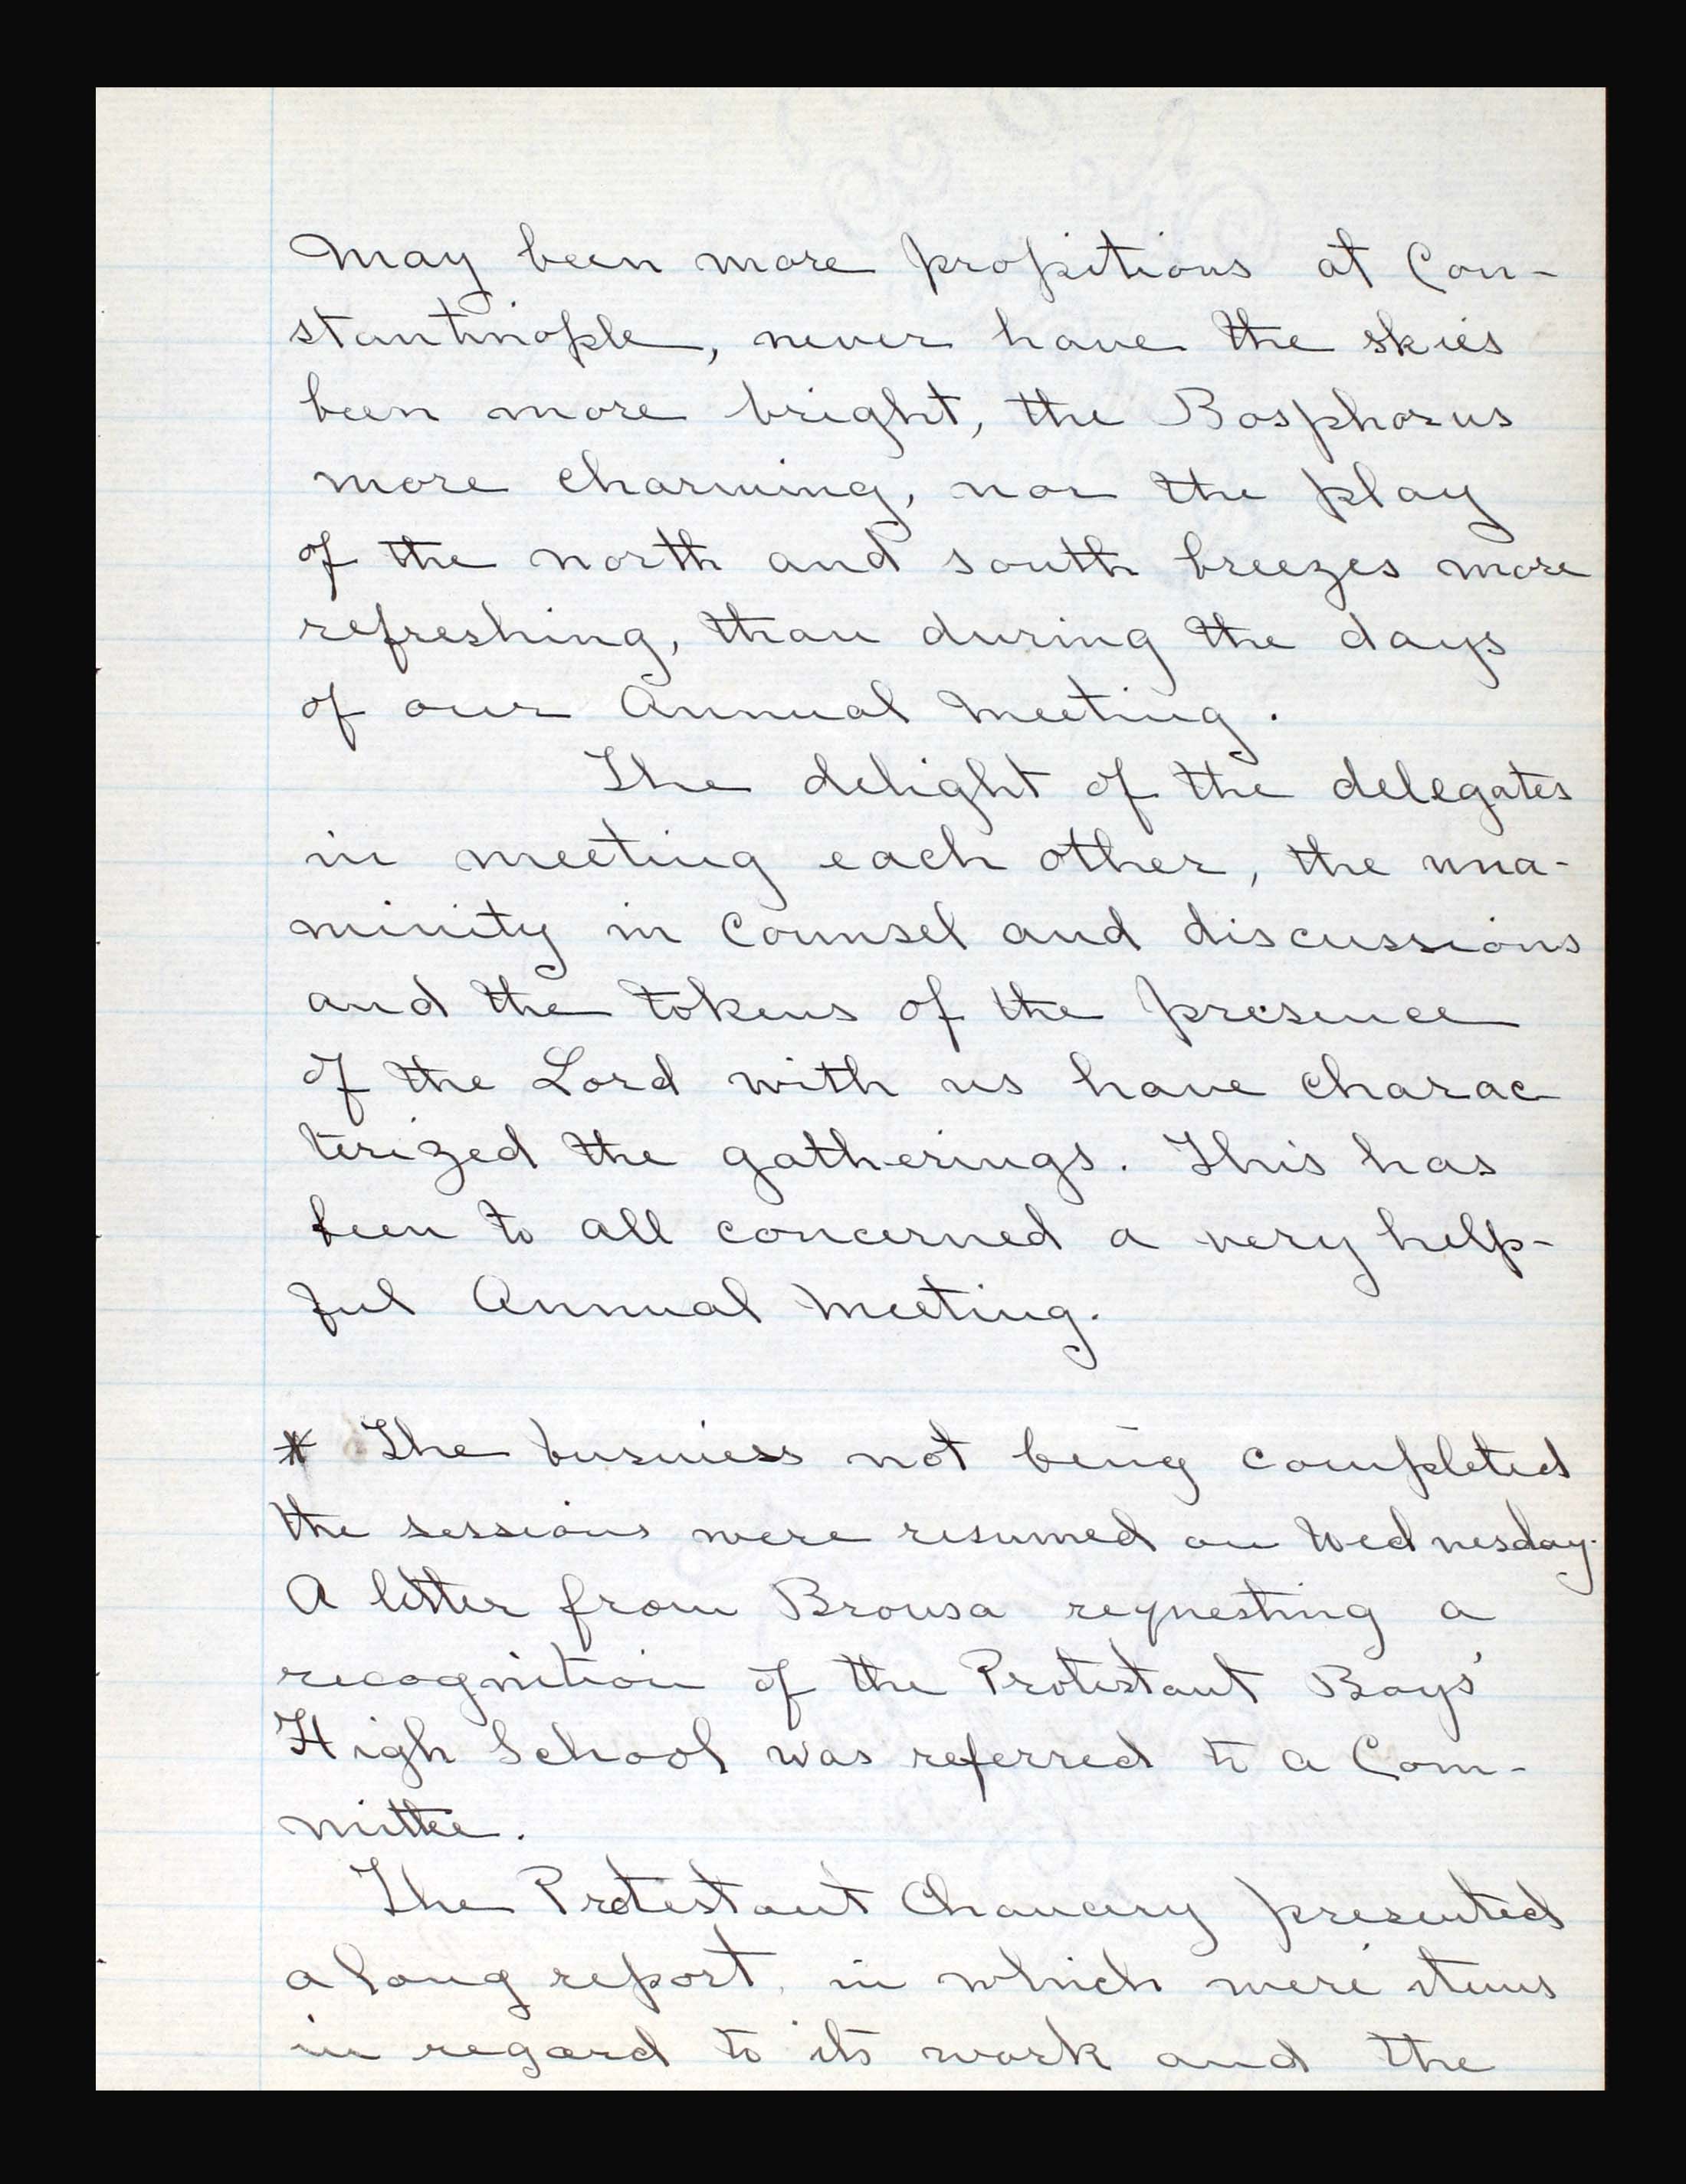 May been more propitious at Con-
stantinople, never have the skies
been more bright, the Bosphorus
more charming, nor the play
of the north and south breezes more
refreshing, than during the days
of our Annual Meeting.
The delight of the delegates
in meeting each other, the una-
minity in Counsel and discussions
and the tokens of the presence
of the Lord with us have charac
terized the gatherings. This has
been to all concerned a very help-
ful Annual Meeting.
* The business not being completed
the sessions were resumed on Wednesday.
A letter from Brousa requesting a
recognition of the Protestant Boys'
High School was referred to a Com-
mittee.
The Protestant Chancery presented
a long report, in which were items
in regard to its work and the